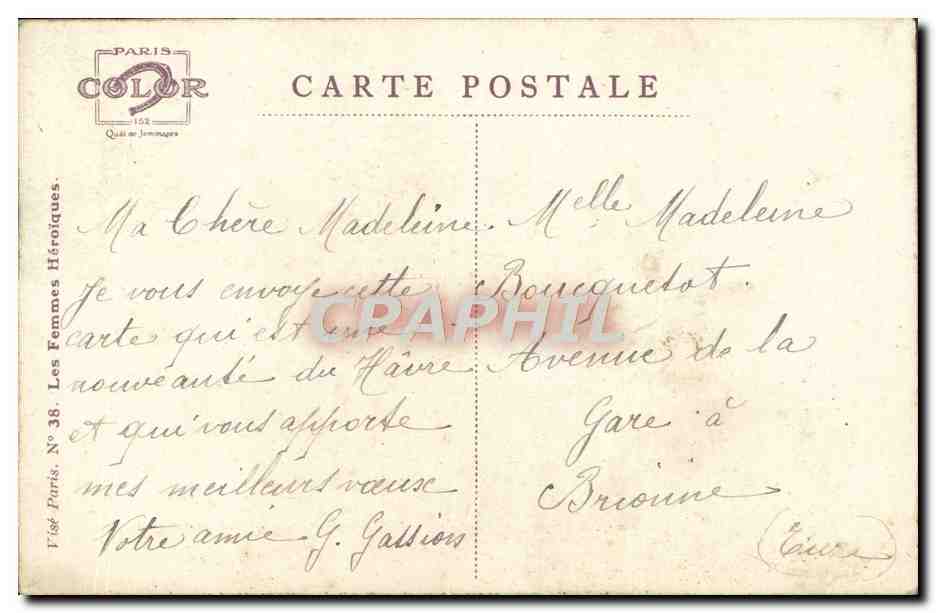 PARIS
COLOR
152
Quai de Jemmapes
CARTE POSTALE
Visé Paris. N° 38. Les Femmes Héroïques.
Ma Chère Madeleine.
Je vous envoye cette
carte qui est une
nouveauté du Hâvre
et qui vous apporte
mes meilleurs vœux
Votre amie G. Gassion
Melle Madeleine
Boucquetot.
Avenue de la
Gare à
Brionne
(Eure)
CPAPHIL